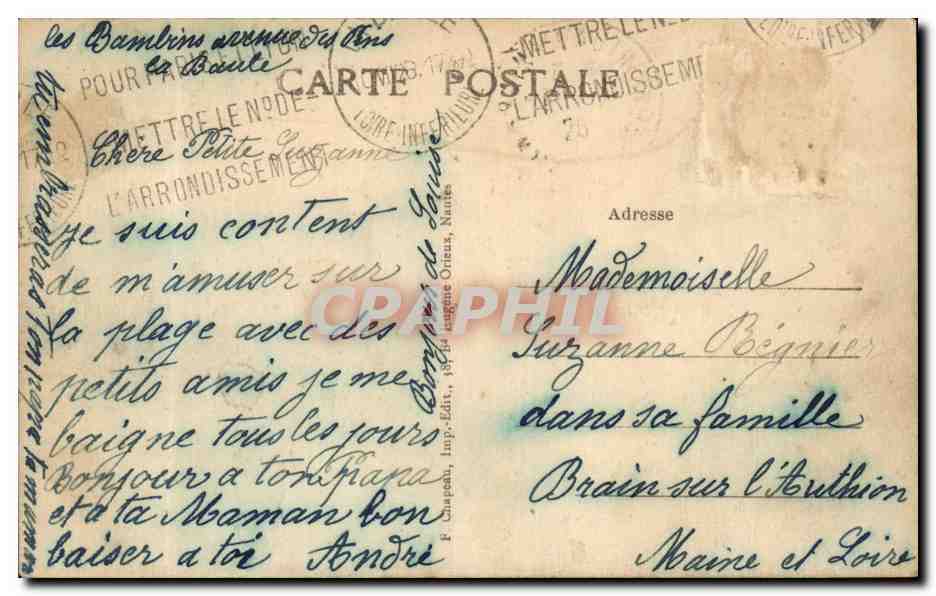 les Bambins avenue des Ons
la Baule
CARTE POSTALE
POUR PARIS
METTRE LE N° DE
L'ARRONDISSEMENT
METTRE LE N° DE
L'ARRONDISSEMENT
LOIRE-INFERIEURE
Chère Petite Suzanne
je suis content
de m'amuser sur
la plage avec des
petits amis je me
baigne tous les jours
Bonjour a ton Papa
et a ta Maman bon
baiser a toi André
Tu embrasseras ton papa ta maman
Bonjour de Louise
F. Chapeau, Imp.-Edit., 38, Bd Eugène Orieux, Nantes
Adresse
Mademoiselle
Suzanne Régnier
dans sa famille
Brain sur l'Authion
Maine et Loire
CPAPHIL